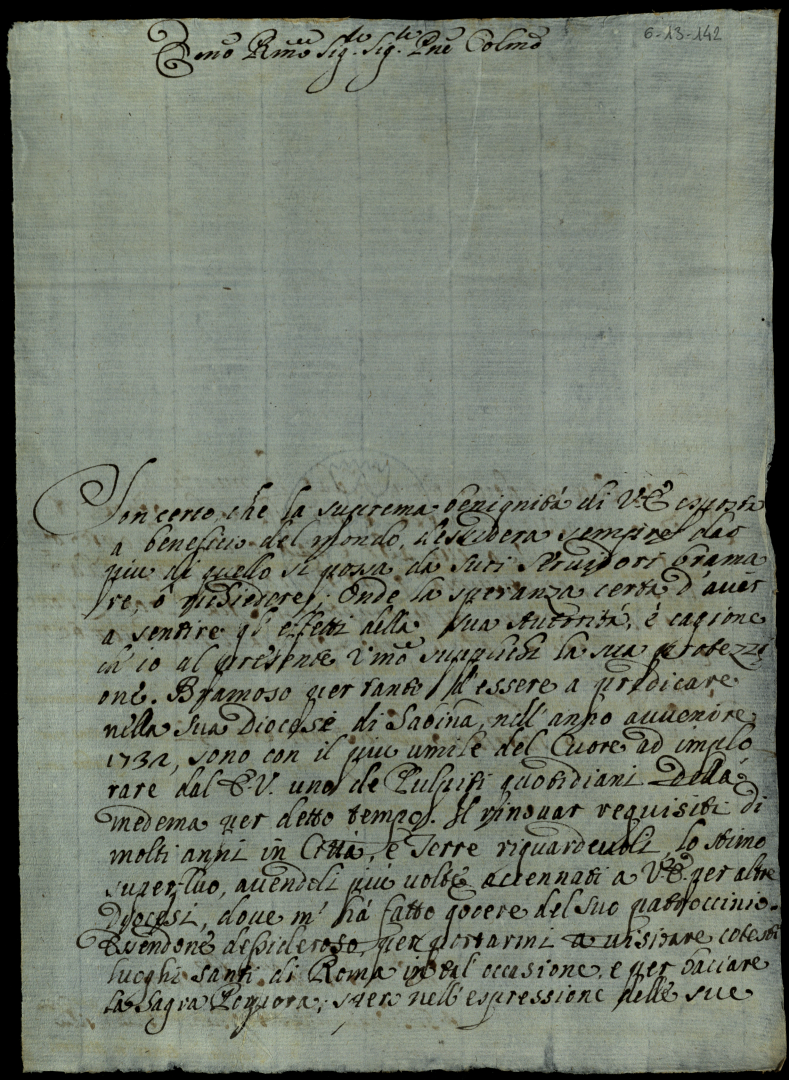 6-13-142
Emo Rmo Sig.re Sig.re Pne Colmo
Son certo che la suprema benignità di V.E. esposta
a beneficio del Mondo, desidera sempre dar
più di quello si possa da suoi servidori brama
re, ò richiedere; Onde la speranza certa d'aver
a sentire gl'effetti della sua Autorità, è cagione
ch'io al presente V'mo supplichi la sua protezzi
one. Bramoso per tanto d'essere a predicare
nella sua Diocese di Sabina, nell'anno avvenire
1732, sono con il più umile del Cuore ad implo
rare dal E.V. uno de Pulpiti quotidiani della
medema per detto tempo. Il rinovar requisiti di
molti anni in Città, e Terre riguardevoli, lo stimo
superfluo, avendoli più volte accennati a V.E. per altre
Diocesi, dove m'há fatto godere del suo patroccinio.
Essendone desideroso, per portarmi a visitare cotesti
luoghi santi di Roma in tal occasione, e per baciare
la Sagra Porpora; spera nell'espressione delle sue